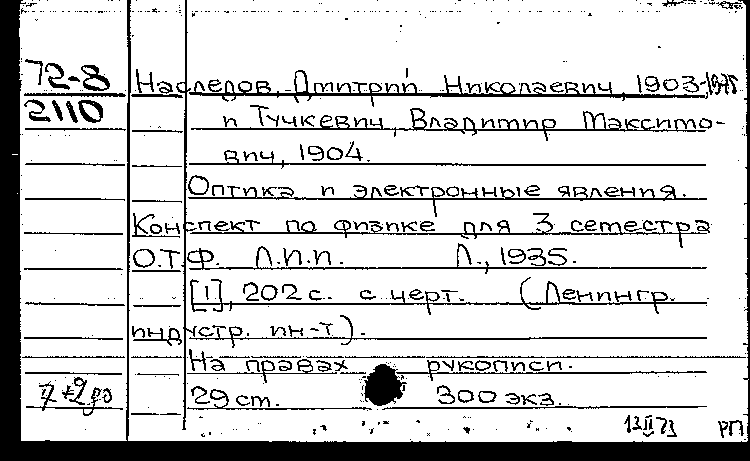 72-8
2110
Наследов, Дмитрий Николаевич, 1903-1975
и Тучкевич, Владимир Максимо-
вич, 1904.
Оптика и электронные явления.
Конспект по физике для 3 семестра
О.Т.Ф. Л.И.И. Л., 1935.
[1], 202 с. с черт. (Ленингр.
индустр. ин-т).
На правах рукописи.
29 ст. 300 экз.
13 II 73 РП